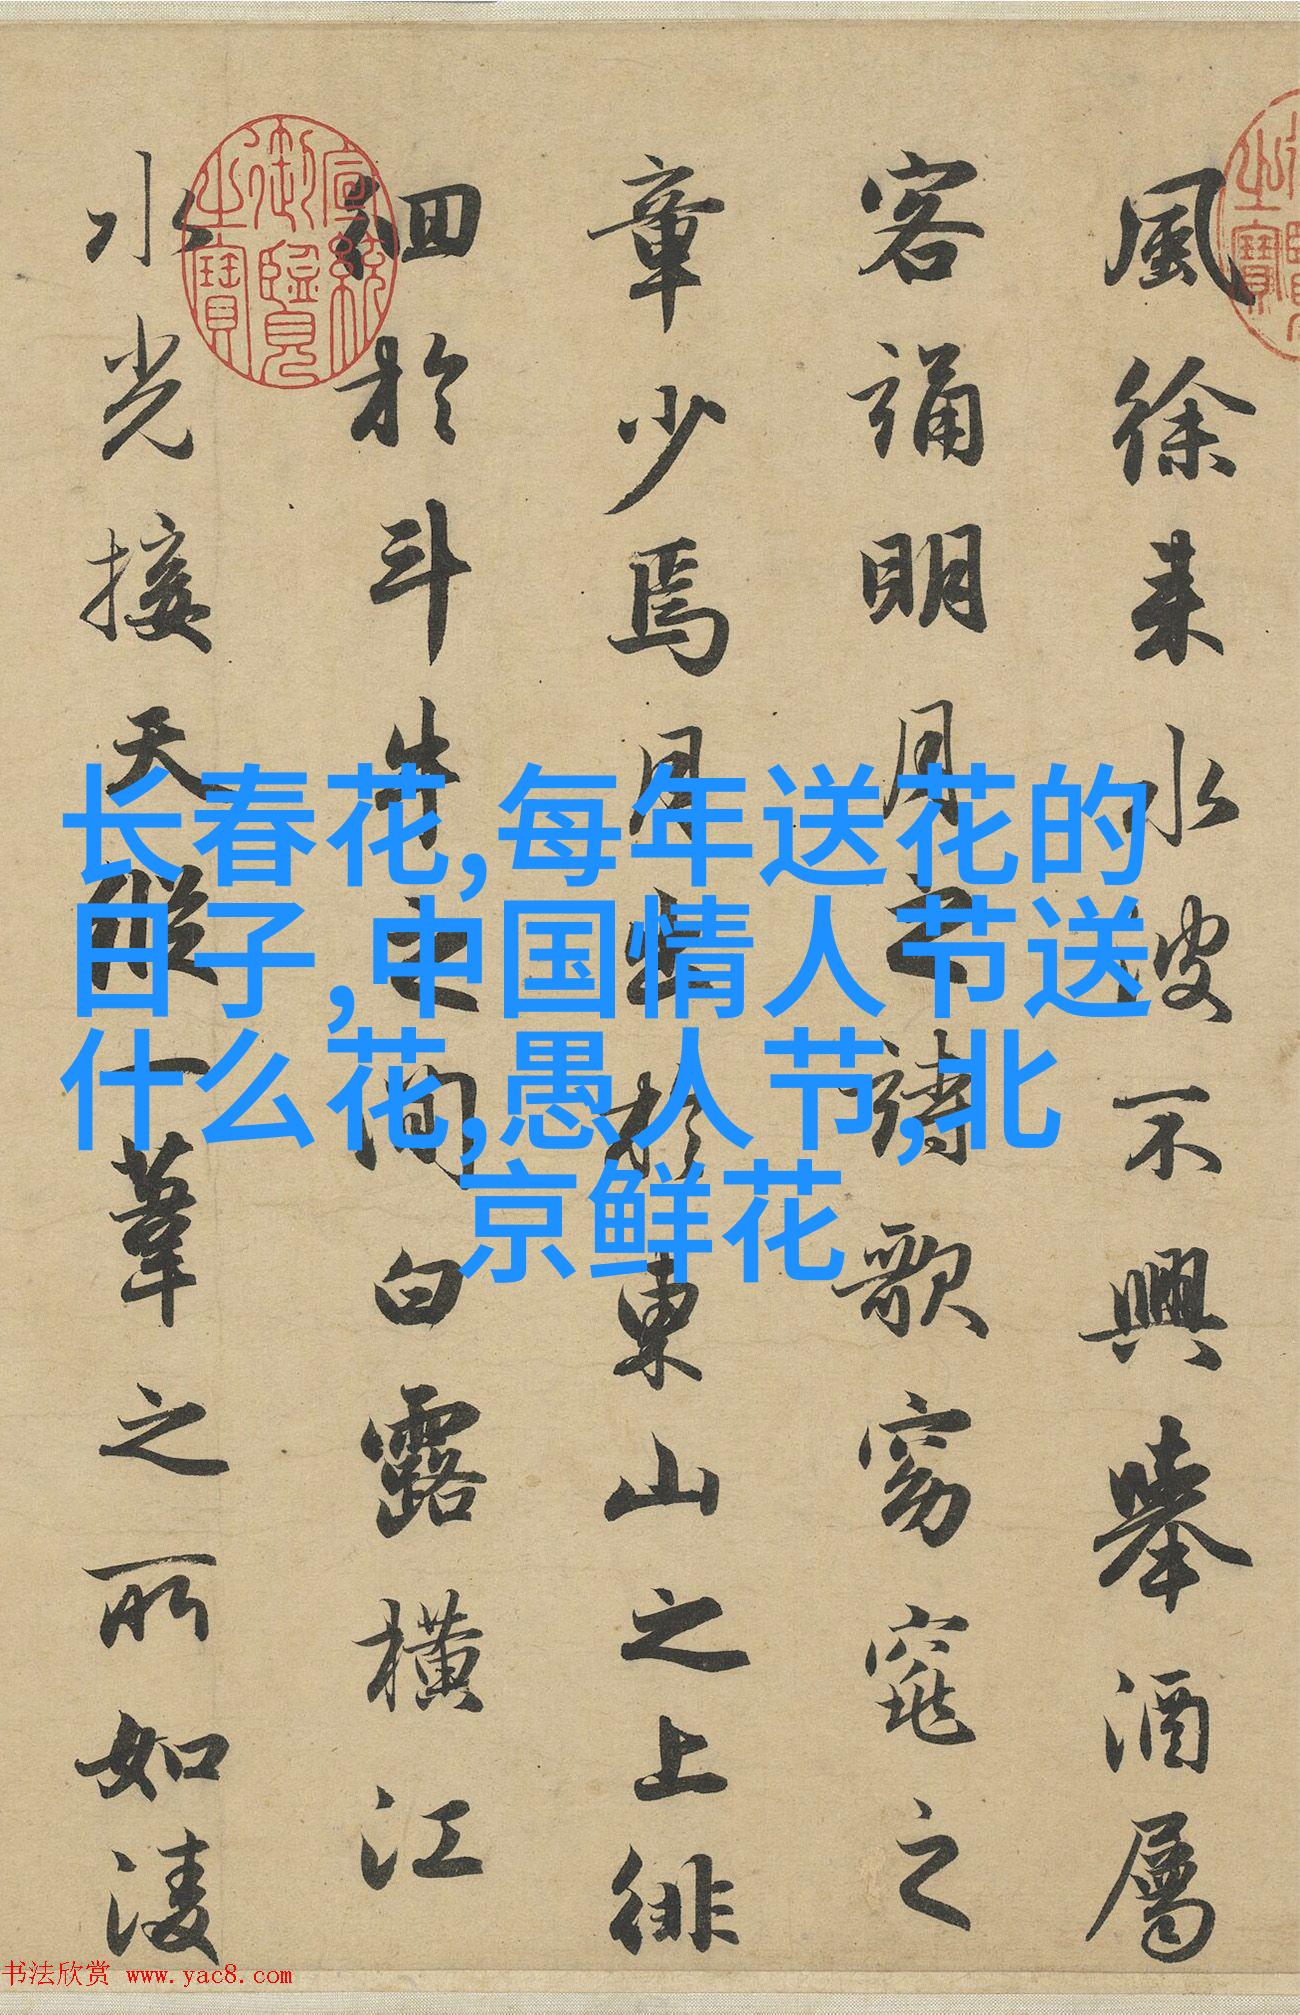 風徐来水波不興舉酒屬
客誦明月之詩歌窈窕之
章少焉月出於東山之上徘
徊於斗牛之間白露橫江
水光接天縱一葦之所如淩
宣統
御覽
之寶
长春花,每年送花的
日子,中国情人节送
什么花,愚人节,北
京鲜花
书法欣赏 www.yac8.com